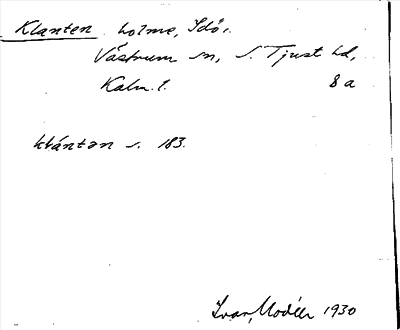 Klanten holme, Idö,
Västrum sn, S. Tjust hd,
Kalm. l. 8a
klántən s. 183.
Ivar Modéer 1930